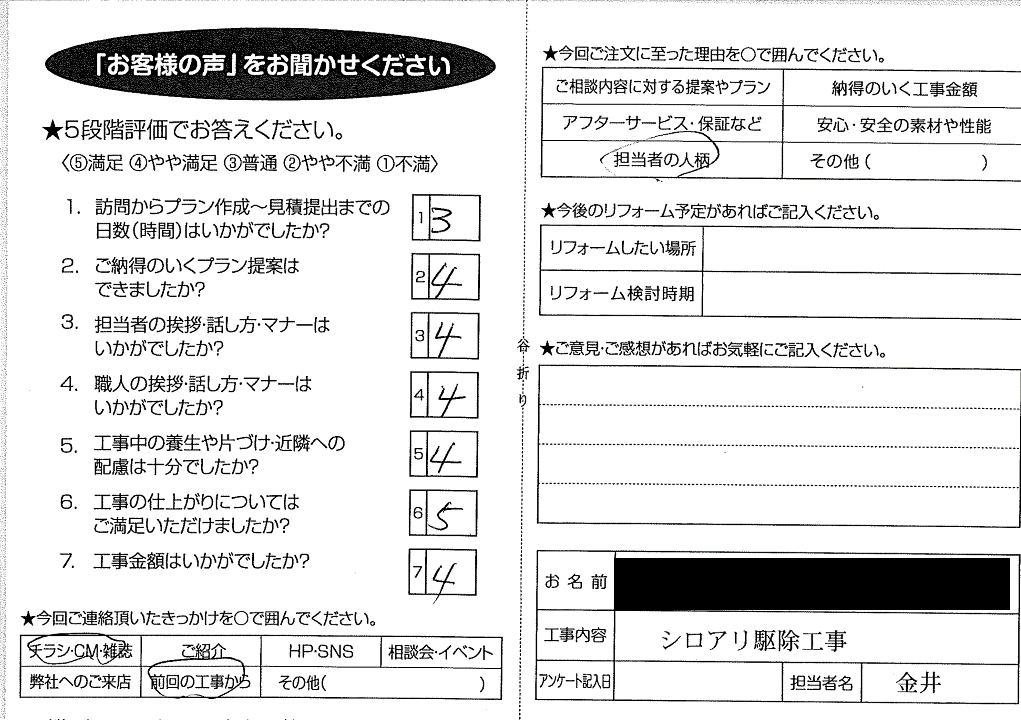 「お客様の声」をお聞かせください
★5段階評価でお答えください。
〈⑤満足 ④やや満足 ③普通 ②やや不満 ①不満〉
1. 訪問からプラン作成～見積提出までの
日数(時間)はいかがでしたか?
1 3
2. ご納得のいくプラン提案は
できましたか?
2 4
3. 担当者の挨拶・話し方・マナーは
いかがでしたか?
3 4
4. 職人の挨拶・話し方・マナーは
いかがでしたか?
4 4
5. 工事中の養生や片づけ・近隣への
配慮は十分でしたか?
5 4
6. 工事の仕上がりについては
ご満足いただけましたか?
6 5
7. 工事金額はいかがでしたか?
7 4
★今回ご連絡頂いたきっかけを○で囲んでください。
チラシ・CM・雑誌 ご紹介 HP・SNS 相談会・イベント
弊社へのご来店 前回の工事から その他( )
谷折り
★今回ご注文に至った理由を○で囲んでください。
ご相談内容に対する提案やプラン 納得のいく工事金額
アフターサービス・保証など 安心・安全の素材や性能
担当者の人柄 その他 ( )
★今後のリフォーム予定があればご記入ください。
リフォームしたい場所
リフォーム検討時期
★ご意見・ご感想があればお気軽にご記入ください。
お名前
工事内容 シロアリ駆除工事
アンケート記入日 担当者名 金井